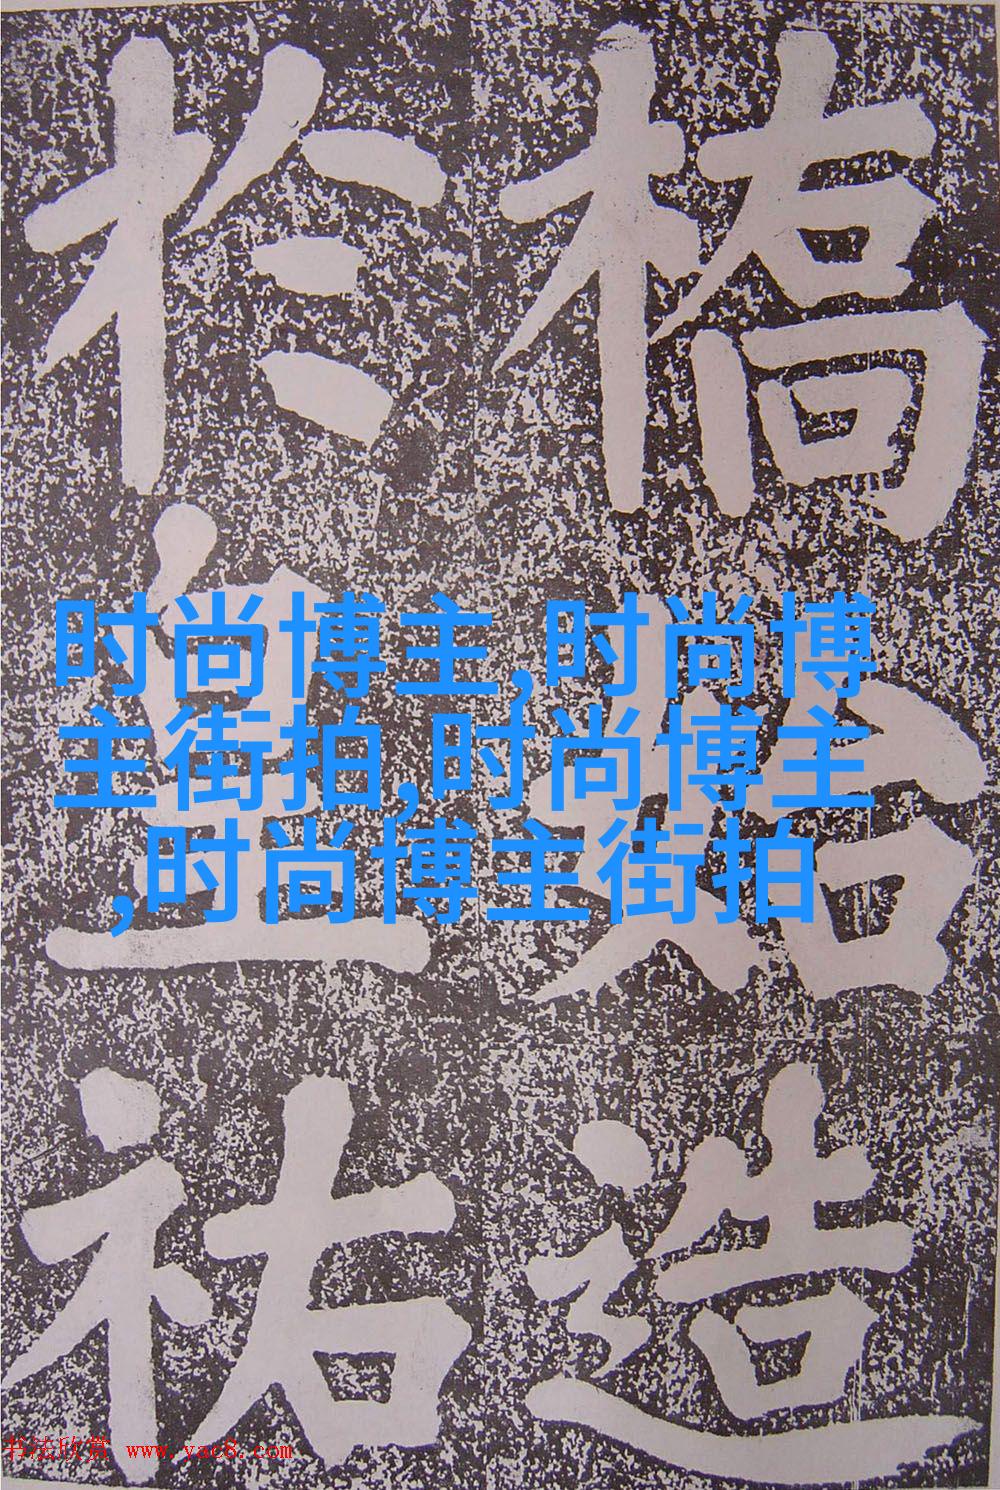 橋始造
於皇祐
时尚博主,时尚博
主街拍,时尚博主
,时尚博主街拍
书法欣赏 www.yac8.com